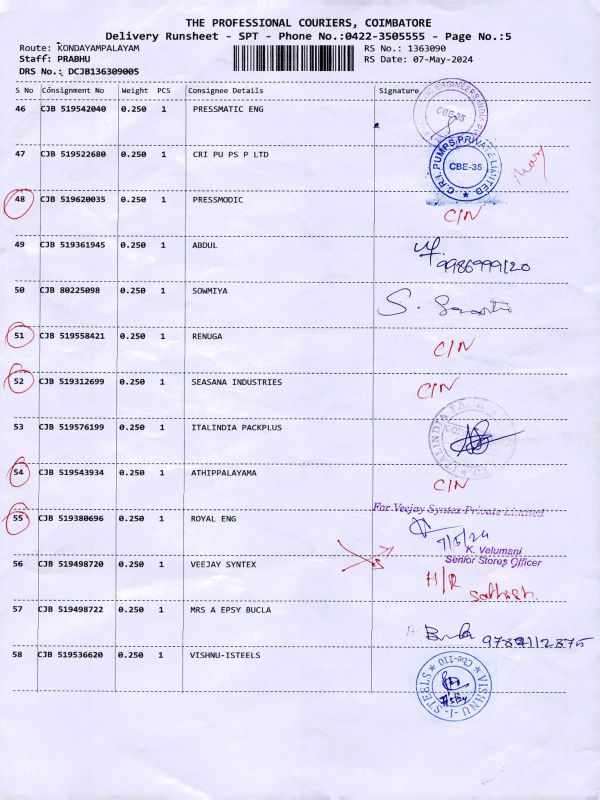 THE PROFESSIONAL COURIERS, COIMBATORE
Delivery Runsheet - SPT - Phone No.:0422-3505555 - Page No.:5
Route: KONDAYAMPALAYAM RS No.: 1363090
Staff: PRABHU RS Date: 07-May-2024
DRS No.: DCJB136309005
S No Consignment No Weight PCS Consignee Details Signature
46 CJB 519542040 0.250 1 PRESSMATIC ENG
CBE-35
47 CJB 519522680 0.250 1 CRI PU PS P LTD
C.R.I. PUMPS PRIVATE LIMITED
CBE-35
48 CJB 519620035 0.250 1 PRESSMODIC
C/N
49 CJB 519361945 0.250 1 ABDUL
9986999120
50 CJB 80225098 0.250 1 SOWMIYA
51 CJB 519558421 0.250 1 RENUGA
C/N
52 CJB 519312699 0.250 1 SEASANA INDUSTRIES
C/N
53 CJB 519576199 0.250 1 ITALINDIA PACKPLUS
54 CJB 519543934 0.250 1 ATHIPPALAYAMA
C/N
For Veejay Syntex Private Limited
55 CJB 519380696 0.250 1 ROYAL ENG
7/5/24
K. Velumani
Senior Stores Officer
56 CJB 519498720 0.250 1 VEEJAY SYNTEX
H/R
Sathish
57 CJB 519498722 0.250 1 MRS A EPSY BUCLA
58 CJB 519536620 0.250 1 VISHNU-ISTEELS
VISHNU-I-STEELS
Cbe-110